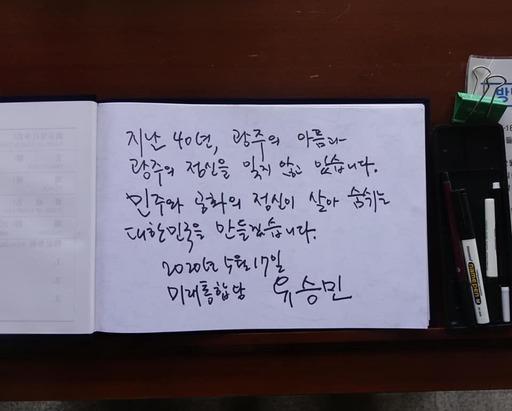 지난 40년, 광주의 아픔과
광주의 정신을 잊지 않고 있습니다.
민주와 공화의 정신이 살아 숨쉬는
대한민국을 만들겠습니다.
2020년 5월 17일
미래통합당 유승민